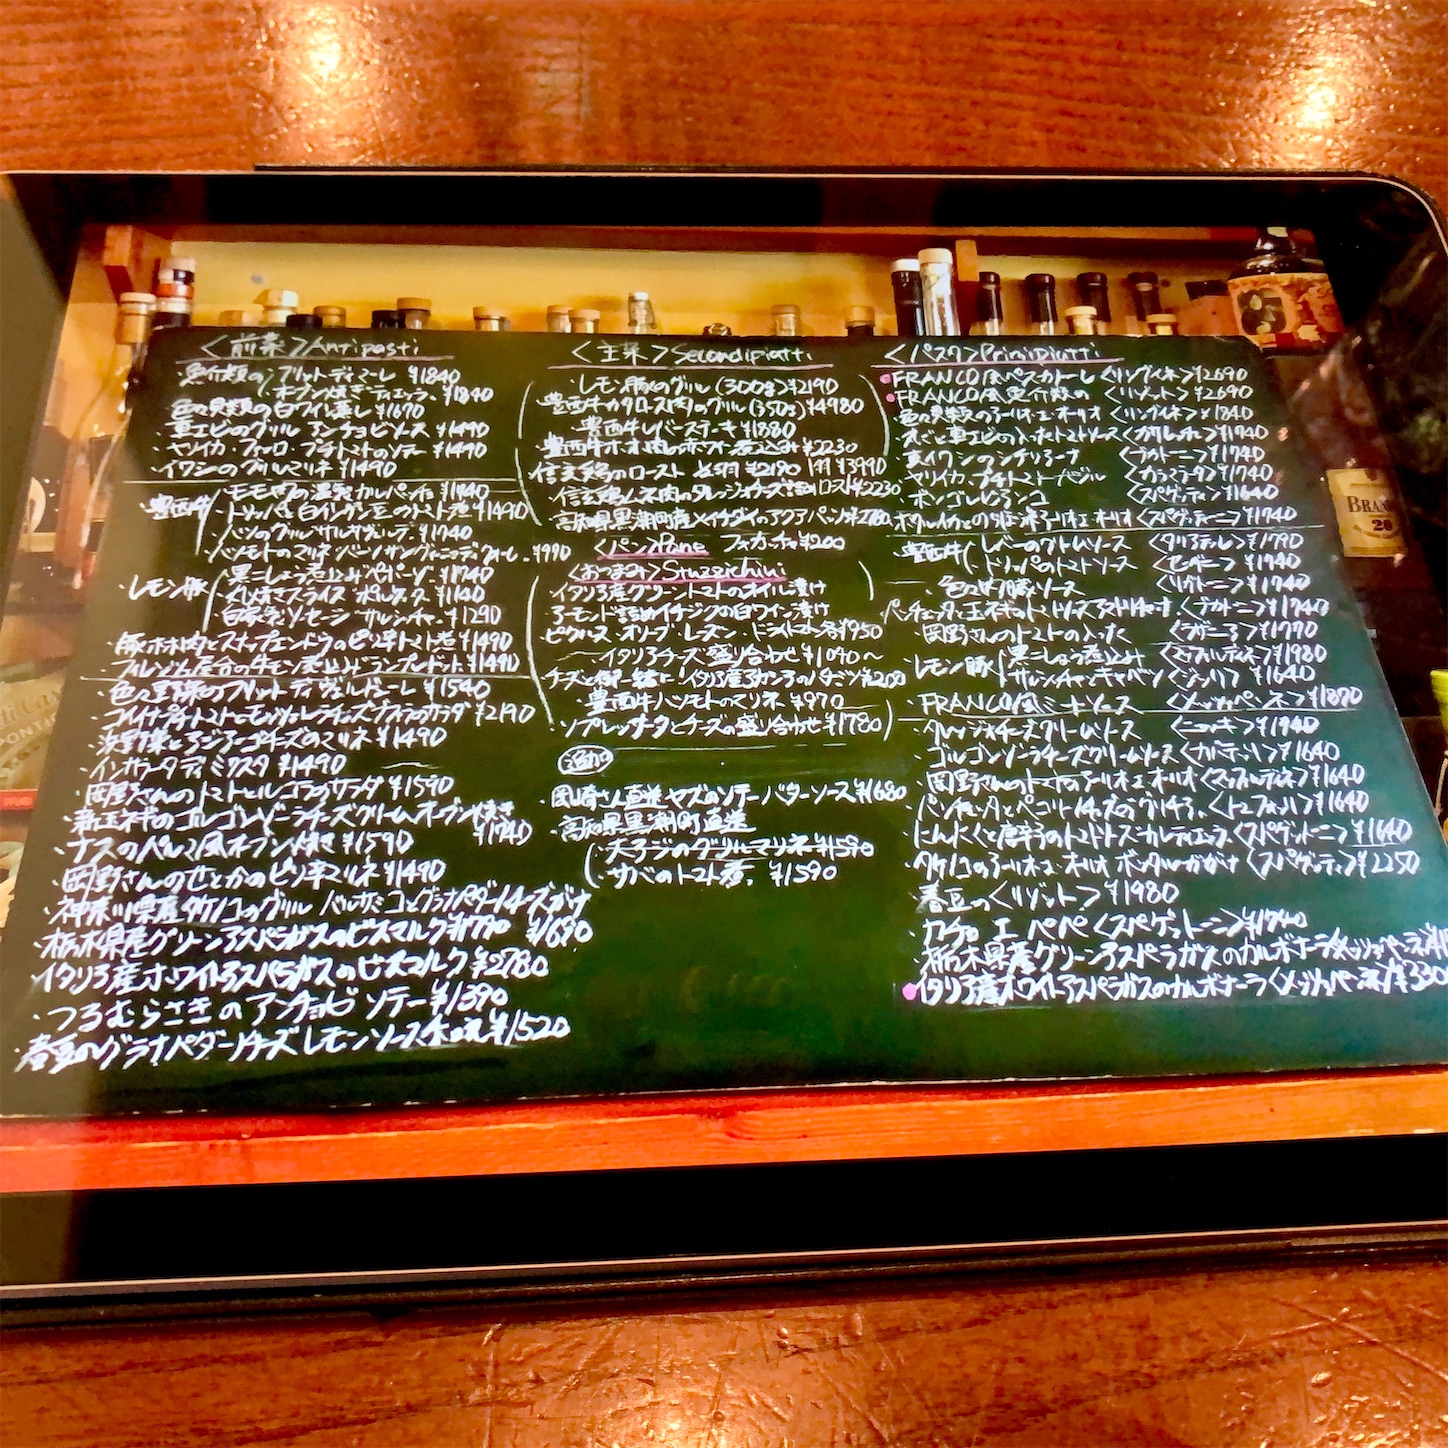 〈前菜〉Antipasti
魚介類のフリットディマーレ ¥1840
〃 オーブン焼き ティエッラ ¥1840
色々貝類の白ワイン蒸し ¥1670
車エビのグリル アンチョビソース ¥1490
ヤリイカ・ファロ・プチトマトのソテー ¥1490
イワシのグリルマリネ ¥1490
豊西牛
モモ肉の温製カルパッチョ ¥1740
トリッパと白インゲン豆のトマト煮 ¥1490
ハツのグリル サルサヴェルデ ¥1740
ハツモトのマリネ ¥990
レモン豚
黒こしょう煮込み ペポーゾ ¥1740
スライス ¥1140
自家製ソーセージ サルシッチャ ¥1290
豚ホホ肉とスナップエンドウのピリ辛トマト煮 ¥1490
フィレンツェ屋台の牛モツ煮込み ランプレドット ¥1490
色々野菜のフリットディヴェルドゥーレ ¥1540
プチトマトとモッツァレラチーズ サラダ ¥2190
アジアーゴチーズのマリネ ¥1490
インサラータ ディ ミクスタ ¥1490
岡野さんのトマトとルコラのサラダ ¥1590
新玉ネギのゴルゴンゾーラチーズクリームオーブン焼き ¥1740
ナスのパルマ風オーブン焼き ¥1590
岡野さんのせとかのピリ辛マリネ ¥1490
神奈川県産タケノコのグリル バルサミコとグラナパダーノチーズがけ ¥1690
栃木県産グリーンアスパラガスのビスマルク ¥1790
イタリア産ホワイトアスパラガスのビスマルク ¥2780
つるむらさきのアンチョビソテー ¥1390
春豆のグラナパダーノチーズレモンソース和え ¥1520
〈主菜〉Secondipiatti
レモン豚のグリル(300g) ¥2190
豊西牛カタロース肉のグリル(350g) ¥4980
豊西牛レバーステーキ ¥1880
豊西牛ホホ肉の赤ワイン煮込み ¥2230
信玄鶏のロースト ½羽 ¥2190 1羽 ¥3990
信玄鶏ムネ肉のタレッジョチーズ詰めロースト ¥2230
高知県黒潮町産メイチダイのアクアパッツァ ¥2780
〈パン〉Pane フォカッチャ ¥200
〈おつまみ〉Stuzzichini
イタリア産グリーントマトのオイル漬け
アーモンド詰めイチジクの白ワイン漬け
ピクルス・オリーブ・レーズン・ドライトマト 各¥950
イタリアチーズ盛り合わせ ¥1090〜
チーズと御一緒に!イタリア産アカシアのハチミツ ¥200
豊西牛ハツモトのマリネ ¥970
ソプレッサータとチーズの盛り合わせ ¥1780
追加
岡崎さん直送 ヤズのソテーバターソース ¥1680
高知県黒潮町直送
大アジのグリルマリネ ¥1590
サバのトマト煮 ¥1590
〈パスタ〉Primipiatti
FRANCO風ペスカトーレ〈リングイネ〉¥2690
FRANCO風魚介類の〈リゾット〉¥2690
色々貝類のアーリオ・エ・オーリオ〈リングイネ〉¥1840
丸ごと車エビの入ったトマトソース〈カサレッチェ〉¥1740
真イワシのシチリアーナ〈ブカティーニ〉¥1740
ヤリイカ・プチトマト・バジル ¥1740
ボンゴレビアンコ〈スパゲッティ〉¥1640
アーリオ・エ・オーリオ〈スパゲッティーニ〉¥1740
豊西牛
レバーのクリームソース〈タリアテッレ〉¥1790
トリッパのトマトソース ¥1740
色々内臓ソース〈リガトーニ〉¥1740
パンチェッタと玉ネギのトマトソース アマトリチャーナ〈ブカティーニ〉¥1740
岡野さんのトマトの入った ¥1770
レモン豚
黒こしょう煮込み〈マファルディーネ〉¥1980
サルシッチャとキャベツ ¥1640
FRANCO風ミートソース〈メッツェペンネ〉¥1890
タレッジョチーズクリームソース〈ニョッキ〉¥1740
ゴルゴンゾーラチーズクリームソース ¥1640
岡野さんの アーリオ・エ・オーリオ〈マファルディネ〉¥1640
パンチェッタとペコリーノチーズのグリーチャ ¥1640
にんにくと唐辛子のトマトソース カレティエッラ〈スパゲットーニ〉¥1640
タケノコのアーリオ・エ・オーリオ ボッタルガがけ〈スパゲッティ〉¥2250
春豆の〈リゾット〉¥1980
カチョ エ ペペ〈スパゲットーニ〉¥1740
栃木県産グリーンアスパラガスのカルボナーラ〈メッツェペンネ〉
イタリア産ホワイトアスパラガスのカルボナーラ〈メッツェペンネ〉
BRAN
20